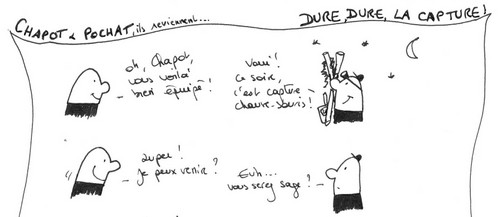 CHAPOT & POCHAT, ils reviennent...
DURE, DURE, LA CAPTURE !
oh, Chapot,
vous voilà
bien équipé !
Vaui !
ce soir,
c'est capture
chauve-souris !
super !
je peux venir ?
Euh...
vous serez sage ?